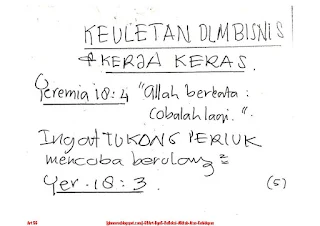 KEULETAN DLM BISNIS
& KERJA KERAS.
Yeremia 18:4 "Allah berkata:
Cobalah lagi."
Ingat TUKANG PERIUK
mencoba berulang²
Yer. 18:3.
(5)